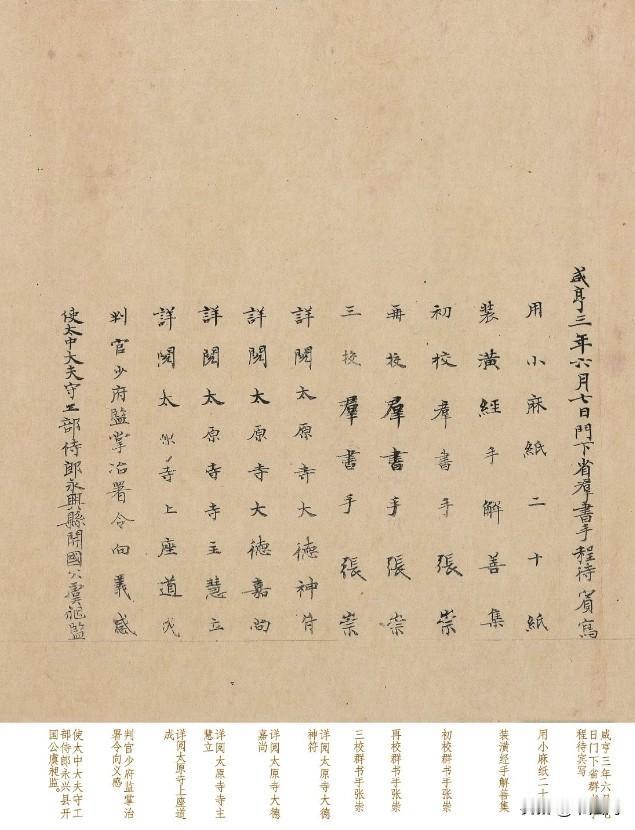 咸亨三年六月七日門下省羣書手程待賓寫
用小麻紙二十紙
装潢經手解善集
初校羣書手張崇
再校羣書手張崇
三校羣書手張崇
詳閱太原寺大德神符
詳閱太原寺大德嘉尚
詳閱太原寺寺主慧立
詳閱太原寺上座道成
判官少府監掌冶署令向義感
使太中大夫守工部侍郎永興縣開國公虞昶監
咸亨三年六月七
日门下省群书手
程待宾写
用小麻纸二十
装潢经手解善集
初校群书手张崇
再校群书手张崇
三校群书手张崇
详阅太原寺大德
神符
详阅太原寺大德
嘉尚
详阅太原寺寺主
慧立
详阅太原寺上座道
成
判官少府监掌冶
署令向义感
使太中大夫守工
部侍郎永兴县开
国公虞昶监。